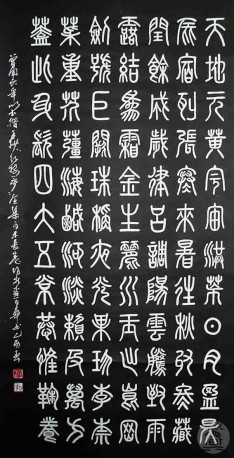 天地元黃宇宙洪荒日月盈昃
辰宿列張寒來暑往秋收冬藏
閏餘成歲律呂調陽雲騰致雨
露結為霜金生麗水玉出崑岡
劍號巨闕珠稱夜光果珍李柰
菜重芥薑海鹹河淡賴及萬方
蓋此身髮四大五常恭惟鞠養